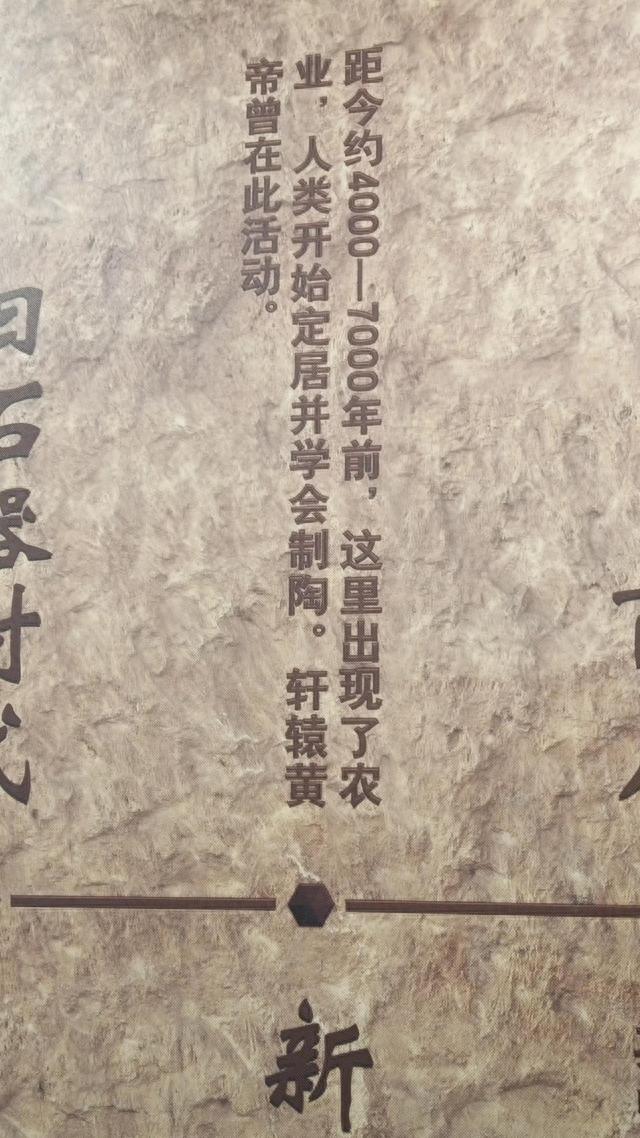 距今约4000—7000年前，这里出现了农
业，人类开始定居并学会制陶。轩辕黄
帝曾在此活动。
新
石器时代